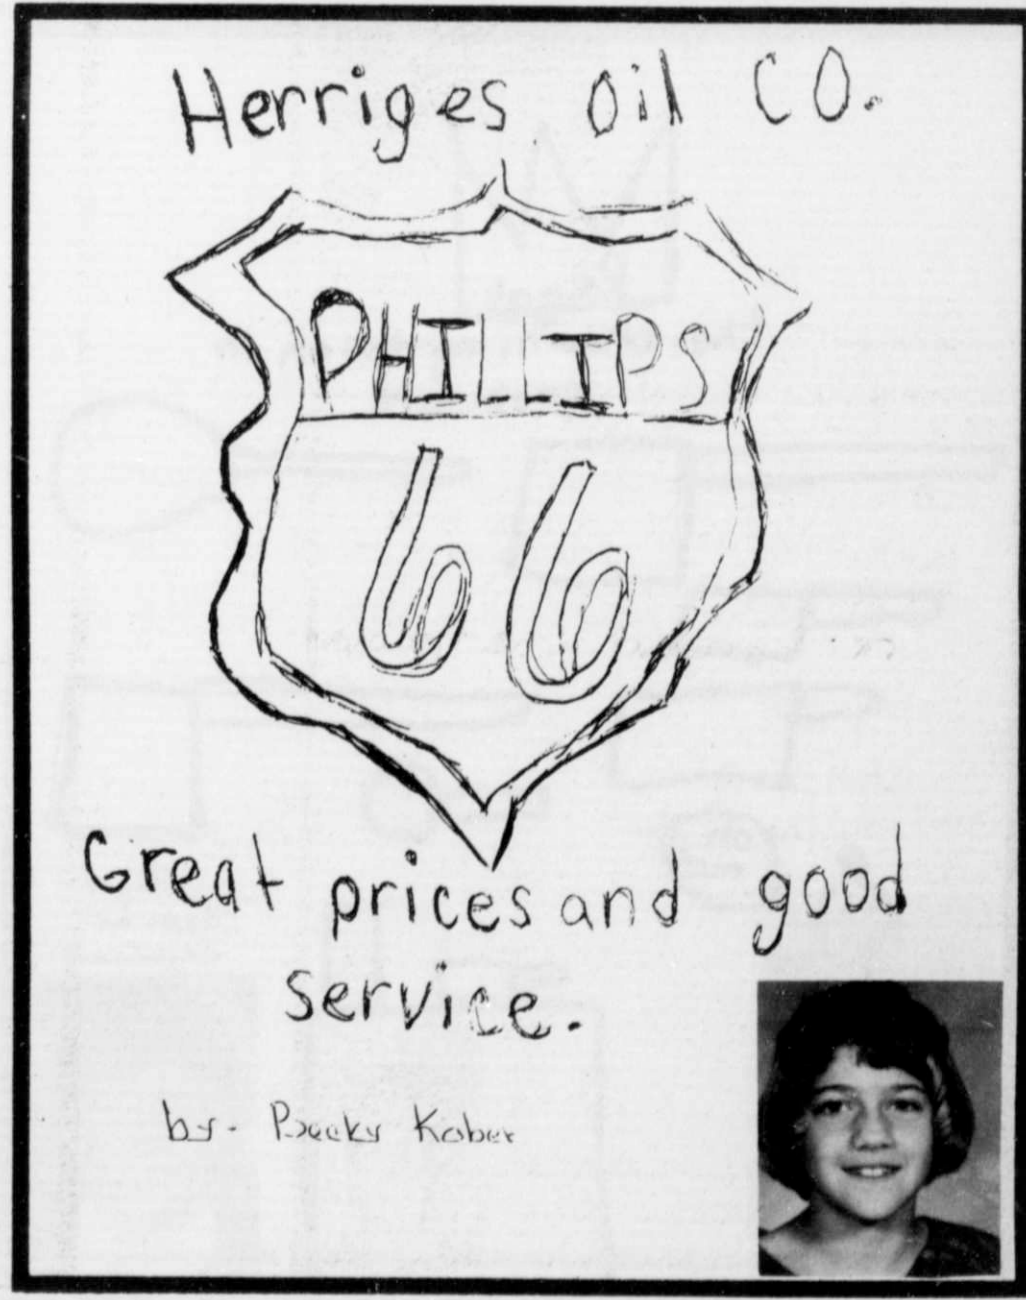 Herriges Oil CO.
PHILLIPS
66
Great prices and good
service.
by- Becky Kober